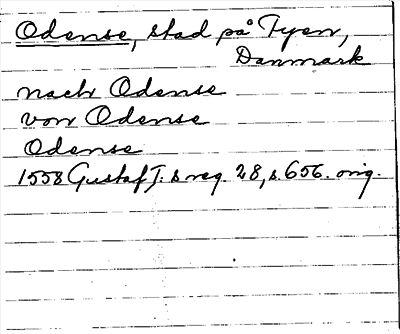 Odense, stad på Fyen,
Danmark
nach Odense
von Odense
Odense
1558 Gustaf I.s reg. 28, s. 656. orig.